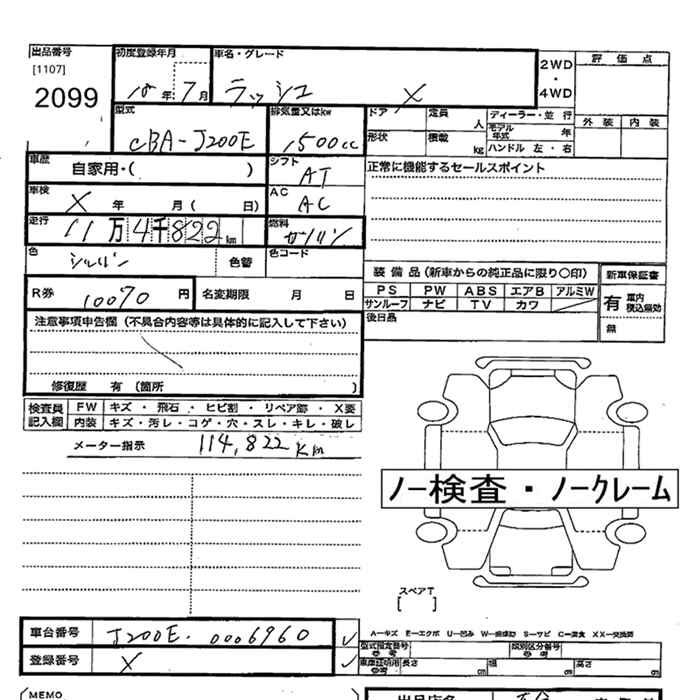 出品番号 初度登録年月 車名・グレード 2WD・4WD 評価点
[1107]
2099 18年 7月 ラッシュ X
型式 排気量又はkw ドア 定員 人 ディーラー・並行 外装 内装
モデル年式 年
CBA-J200E 1500cc 形状 積載 kg ハンドル 左・右
車歴 自家用・( ) シフト AT 正常に機能するセールスポイント
車検 X 年 月( 日) AC AC
走行 11万4千822km 燃料 ガソリン
色 シルバー 色替 色コード
装備品(新車からの純正品に限り○印) 新車保証書
R券 10070円 名変期限 月 日 PS PW ABS エアB アルミW 有 車内積込無効
サンルーフ ナビ TV カワ
注意事項申告欄(不具合内容等は具体的に記入して下さい) 後日品 無
修復歴 有(箇所 )
検査員記入欄 FW キズ・飛石・ヒビ割・リペア跡・X要
内装 キズ・汚レ・コゲ・穴・スレ・キレ・破レ
メーター指示 114,822Km
ノー検査・ノークレーム
スペアT
[ ]
車台番号 J200E-0006960 ✓ A—キズ E—エクボ U—凹み S—サビ XX—交換済
型式指定番号 類別区分番号
登録番号 X ✓ 車庫証明用 長さ cm 幅 cm 高さ cm
(MEMO 出品店名